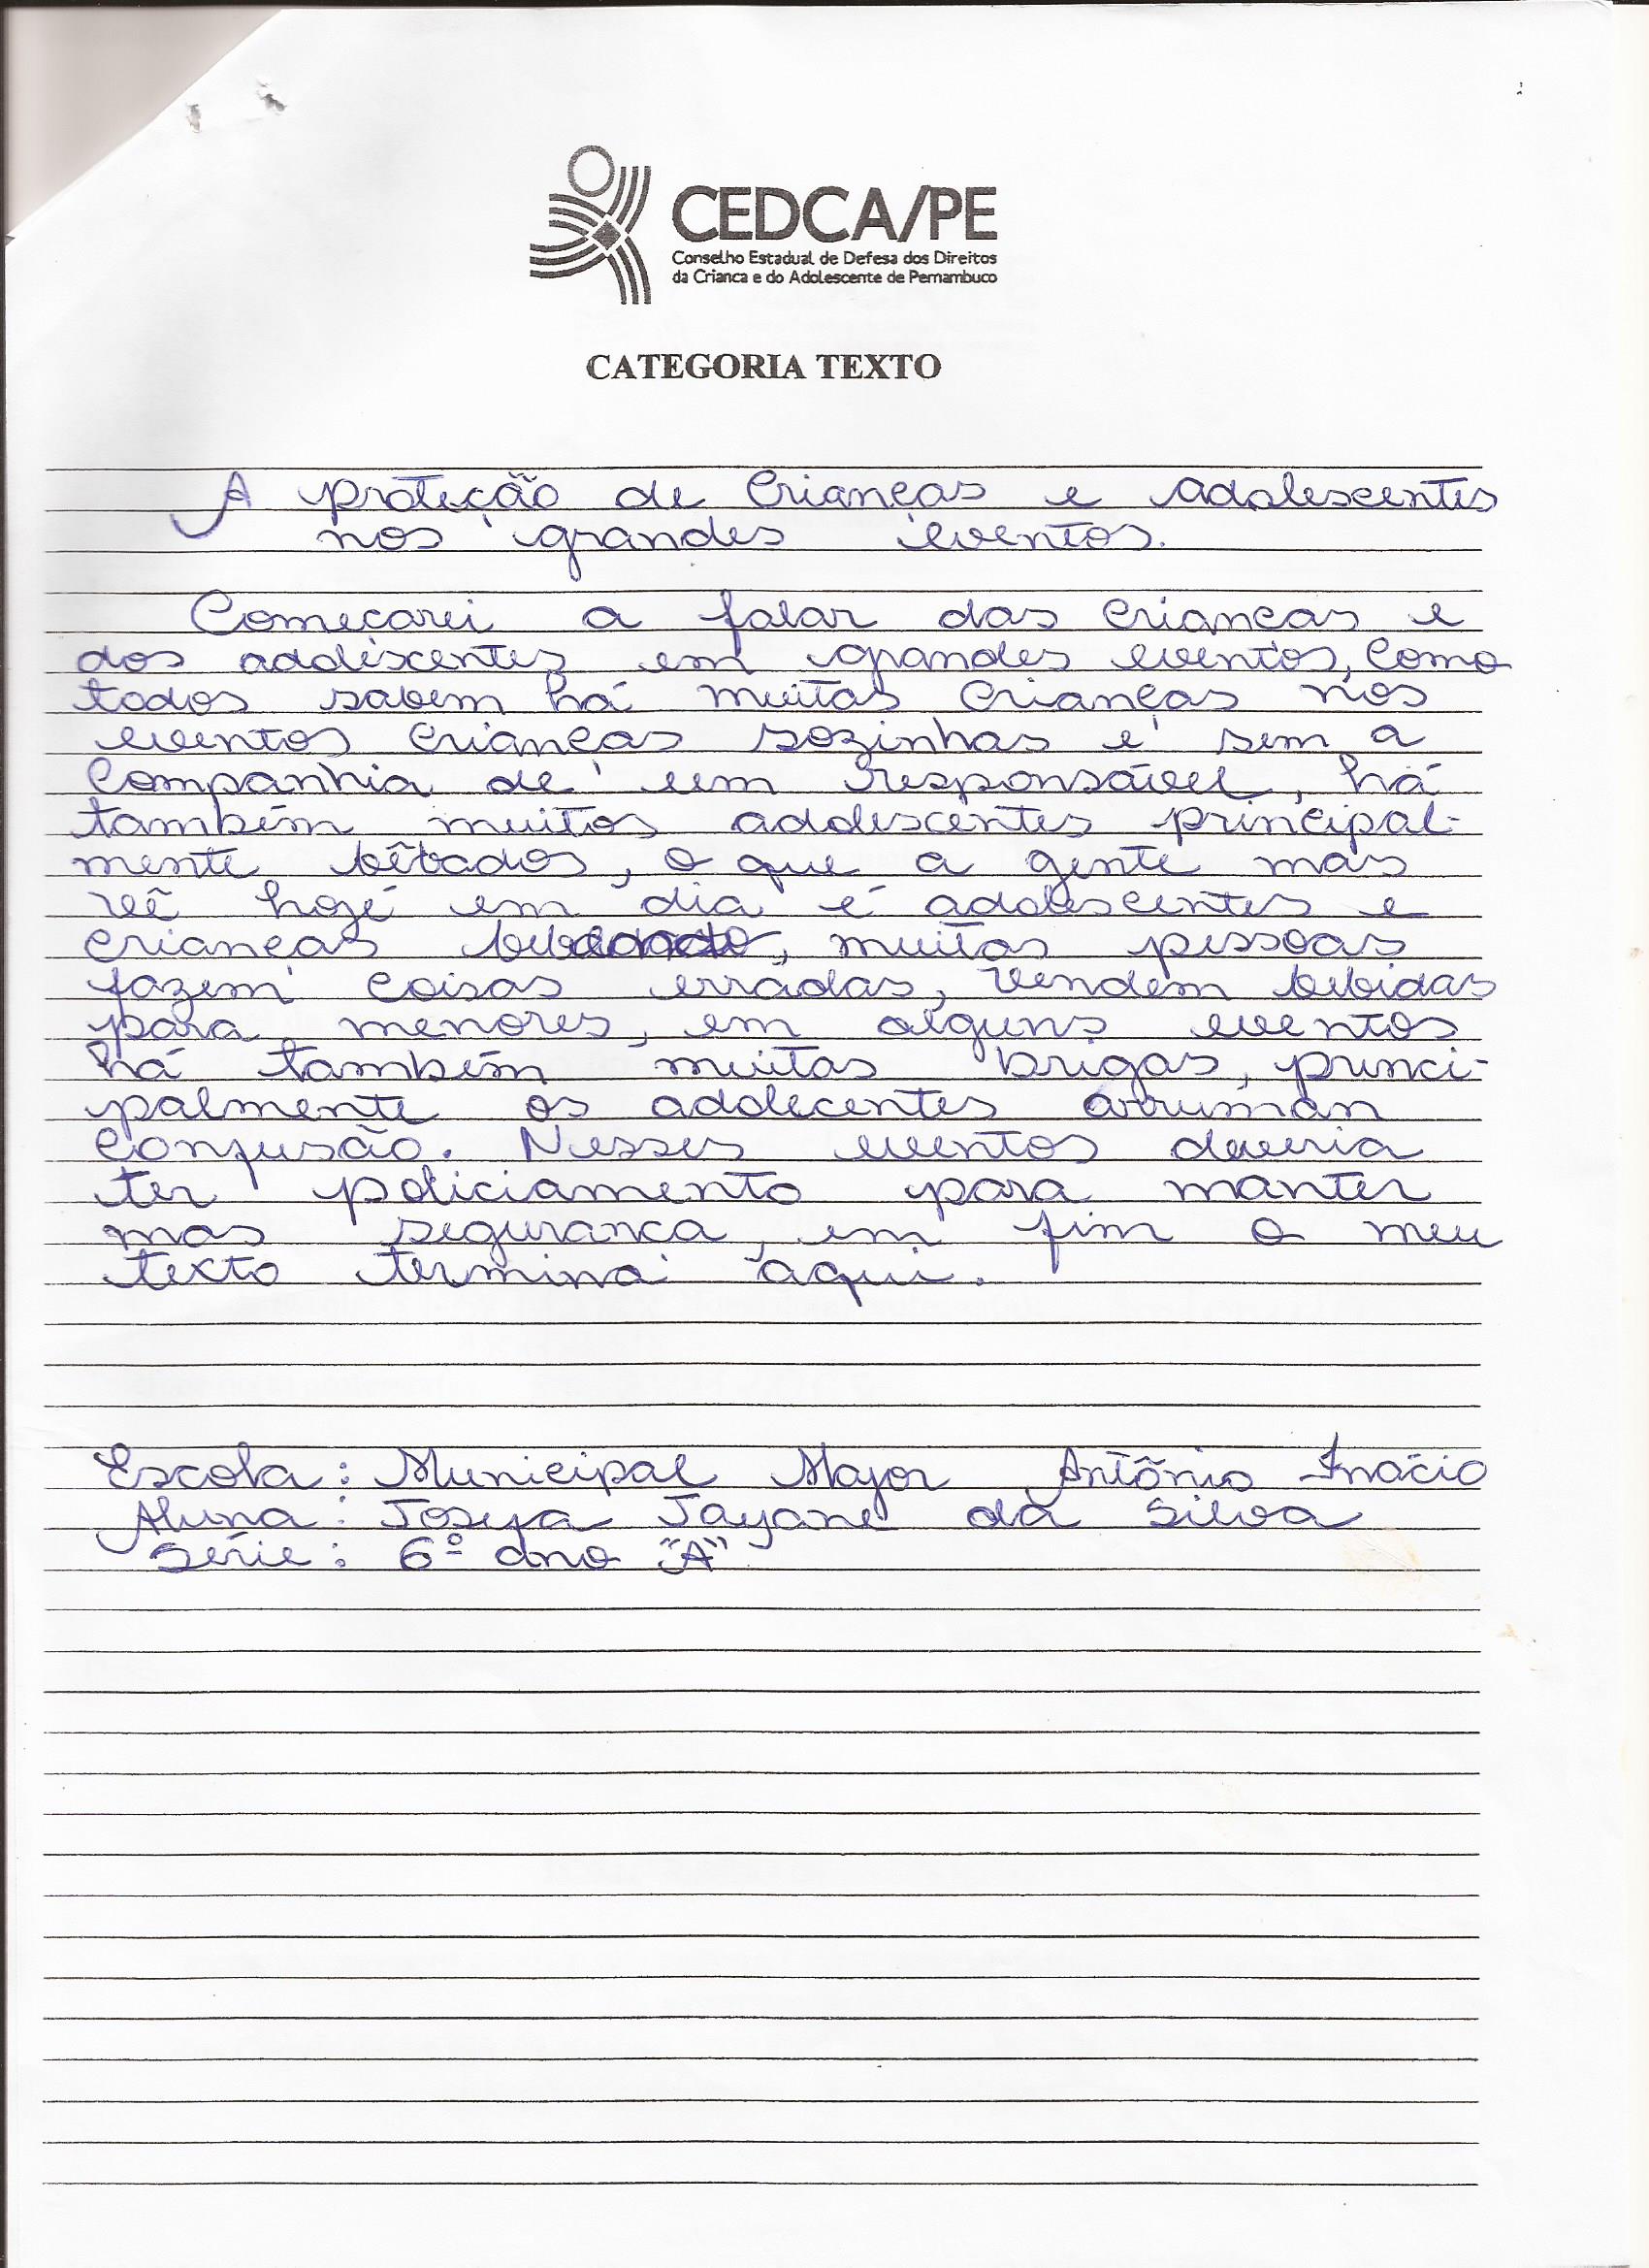 CEDCA/PE
Conselho Estadual de Defesa dos Direitos
da Crianca e do Adolescente de Pernambuco
CATEGORIA TEXTO
A proteção de Crianças e adolescentes
nos grandes eventos.
Começarei a falar das crianças e
dos adolescentes em grandes eventos, como
todos sabem há muitas crianças nos
eventos crianças sozinhas e sem a
companhia de um responsável, há
também muitos adolescentes principal-
mente bêbados, o que a gente mas
vê hoje em dia é adolescentes e
crianças bebendo, muitas pessoas
fazem coisas erradas, vendem bebidas
para menores, em alguns eventos
há também muitas brigas, princi-
palmente os adolecentes arruman
confusão. Nesses eventos deveria
ter policiamento para manter
mas segurança, em fim o meu
texto termina aqui.
Escola: Municipal Major Antônio Inácio
Aluna: Josefa Jayane da Silva
Série: 6º ano "A"